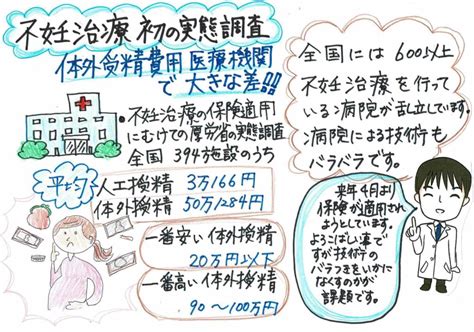 不妊治療 初の実態調査
体外受精費用 医療機関
で 大きな差!!
・不妊治療の保険適用
にむけての厚労省の実態調査
全国 394施設のうち
平均
人工授精 3万166円
体外授精 50万1284円
一番安い 体外授精
20万円以下
一番高い 体外授精
90～100万円
全国には 600以上
不妊治療を行って
いる病院が乱立しています。
病院による技術も
バラバラです。
来年4月より
保険が適用され
ようとしています。
よろこばしい事で
すが技術の
バラつきをいかに
なくすのかが
課題です。